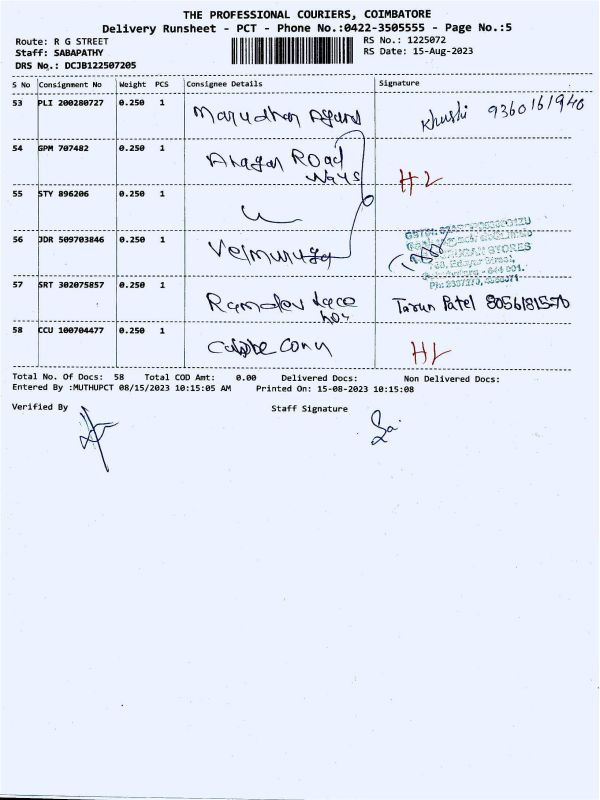 THE PROFESSIONAL COURIERS, COIMBATORE
Delivery Runsheet - PCT - Phone No.:0422-3505555 - Page No.:5
Route: R G STREET
RS No.: 1225072
Staff: SABAPATHY
RS Date: 15-Aug-2023
DRS No.: DCJB122507205
S No Consignment No Weight PCS Consignee Details Signature
53 PLI 200280727 0.250 1 Marudhar Khushi 9360161940
54 GPM 707482 0.250 1 Road
H2
55 STY 896206 0.250 1
56 JDR 509703846 0.250 1
STORES
57 SRT 302075857 0.250 1 Ramdev Tarun Patel
58 CCU 100704477 0.250 1
Total No. Of Docs: 58 Total COD Amt: 0.00 Delivered Docs: Non Delivered Docs:
Entered By :MUTHUPCT 08/15/2023 10:15:05 AM Printed On: 15-08-2023 10:15:08
Verified By Staff Signature